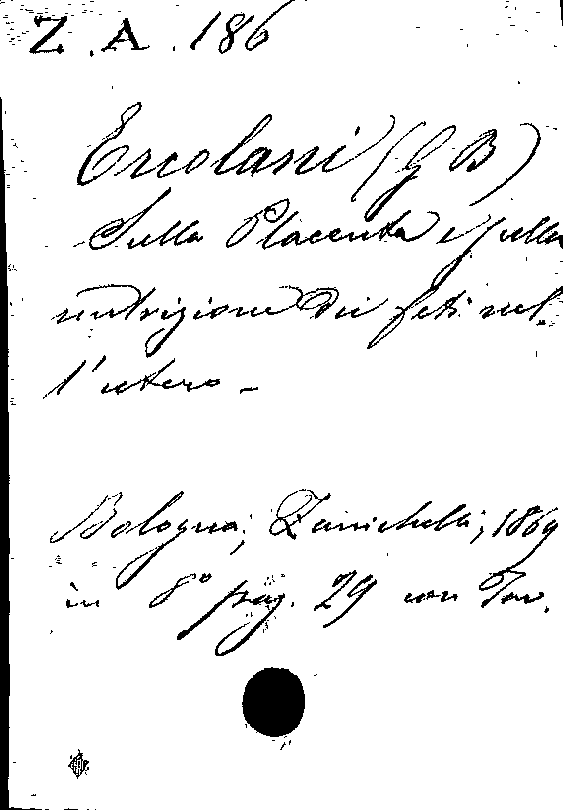 Z. A. 186
Ercolani (G B)
Sulla Placenta e sulla
nutrizione dei feti nel-
l'utero -
Bologna, Zanichelli, 1869
in 8° pag. 29 con Tav.